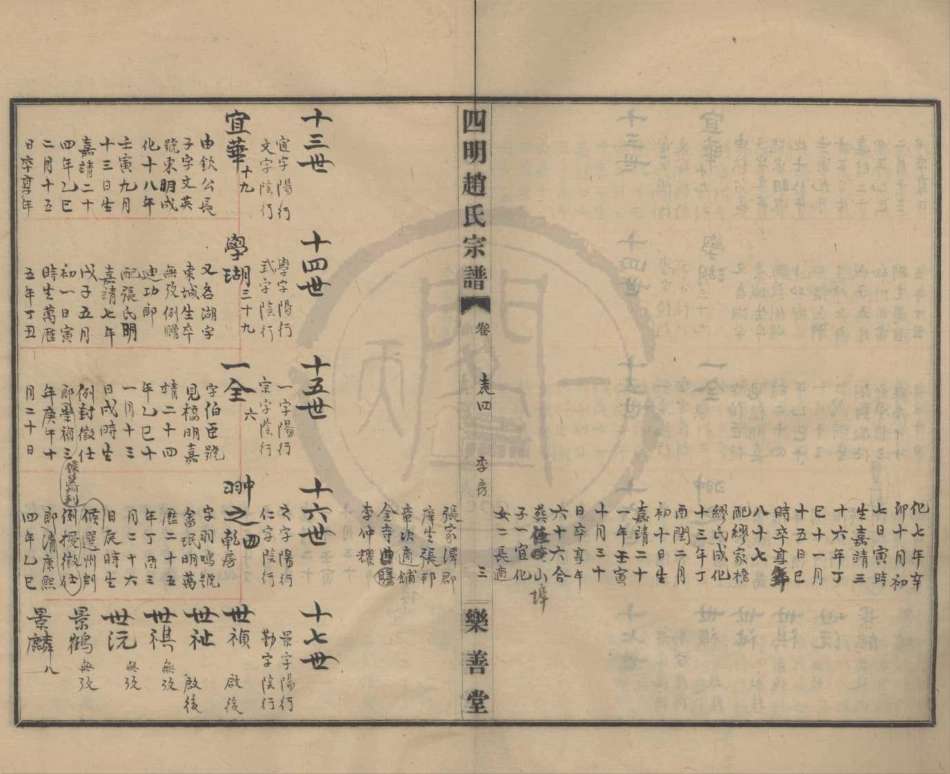 化七年辛
卯十月初
七日寅時
生嘉靖三
十六年丁
巳十一月
十五日巳
時卒享年
八十七
配繆家橋
繆氏成化
十三年丁
酉閏二月
初十日生
嘉靖二十
一年壬寅
十月三十
日卒享年
六十六合
子一宜化
女二長適
張家潭郡
庠生張邦
章次適鋪
李仲耀
四明趙氏宗譜
卷
表四
季房
三
樂善堂
十三世
宜字陽行
文字陰行
宜華
十九
由欽公長
子字文英
號東明成
化十八年
壬寅九月
十三日生
嘉靖二十
四年乙巳
二月十五
日卒享年
十四世
學字陽行
式字陰行
學瑚
三十九
又名湖字
東城生卒
無攷例贈
迪功郎
配張氏明
嘉靖七年
戊子五月
初一日寅
時生萬歷
五年丁丑
十五世
一字陽行
宗字陰行
一全
六
字伯臣號
見橋明嘉
靖二十四
年乙巳十
一月十三
日戌時生
例封徵仕
年庚午十
月二十日
十六世
之字陽行
仁字陰行
翀之
四
字羽鳴號
歷二十五
年丁酉三
月二十六
日辰時生
候選州判
例授徵仕
郎清康熙
四年乙巳
十七世
景字陽行
勤字陰行
世禎
啟後
世祉
啟後
世祺
無攷
世沅
無攷
景鶴
無攷
景麟
八